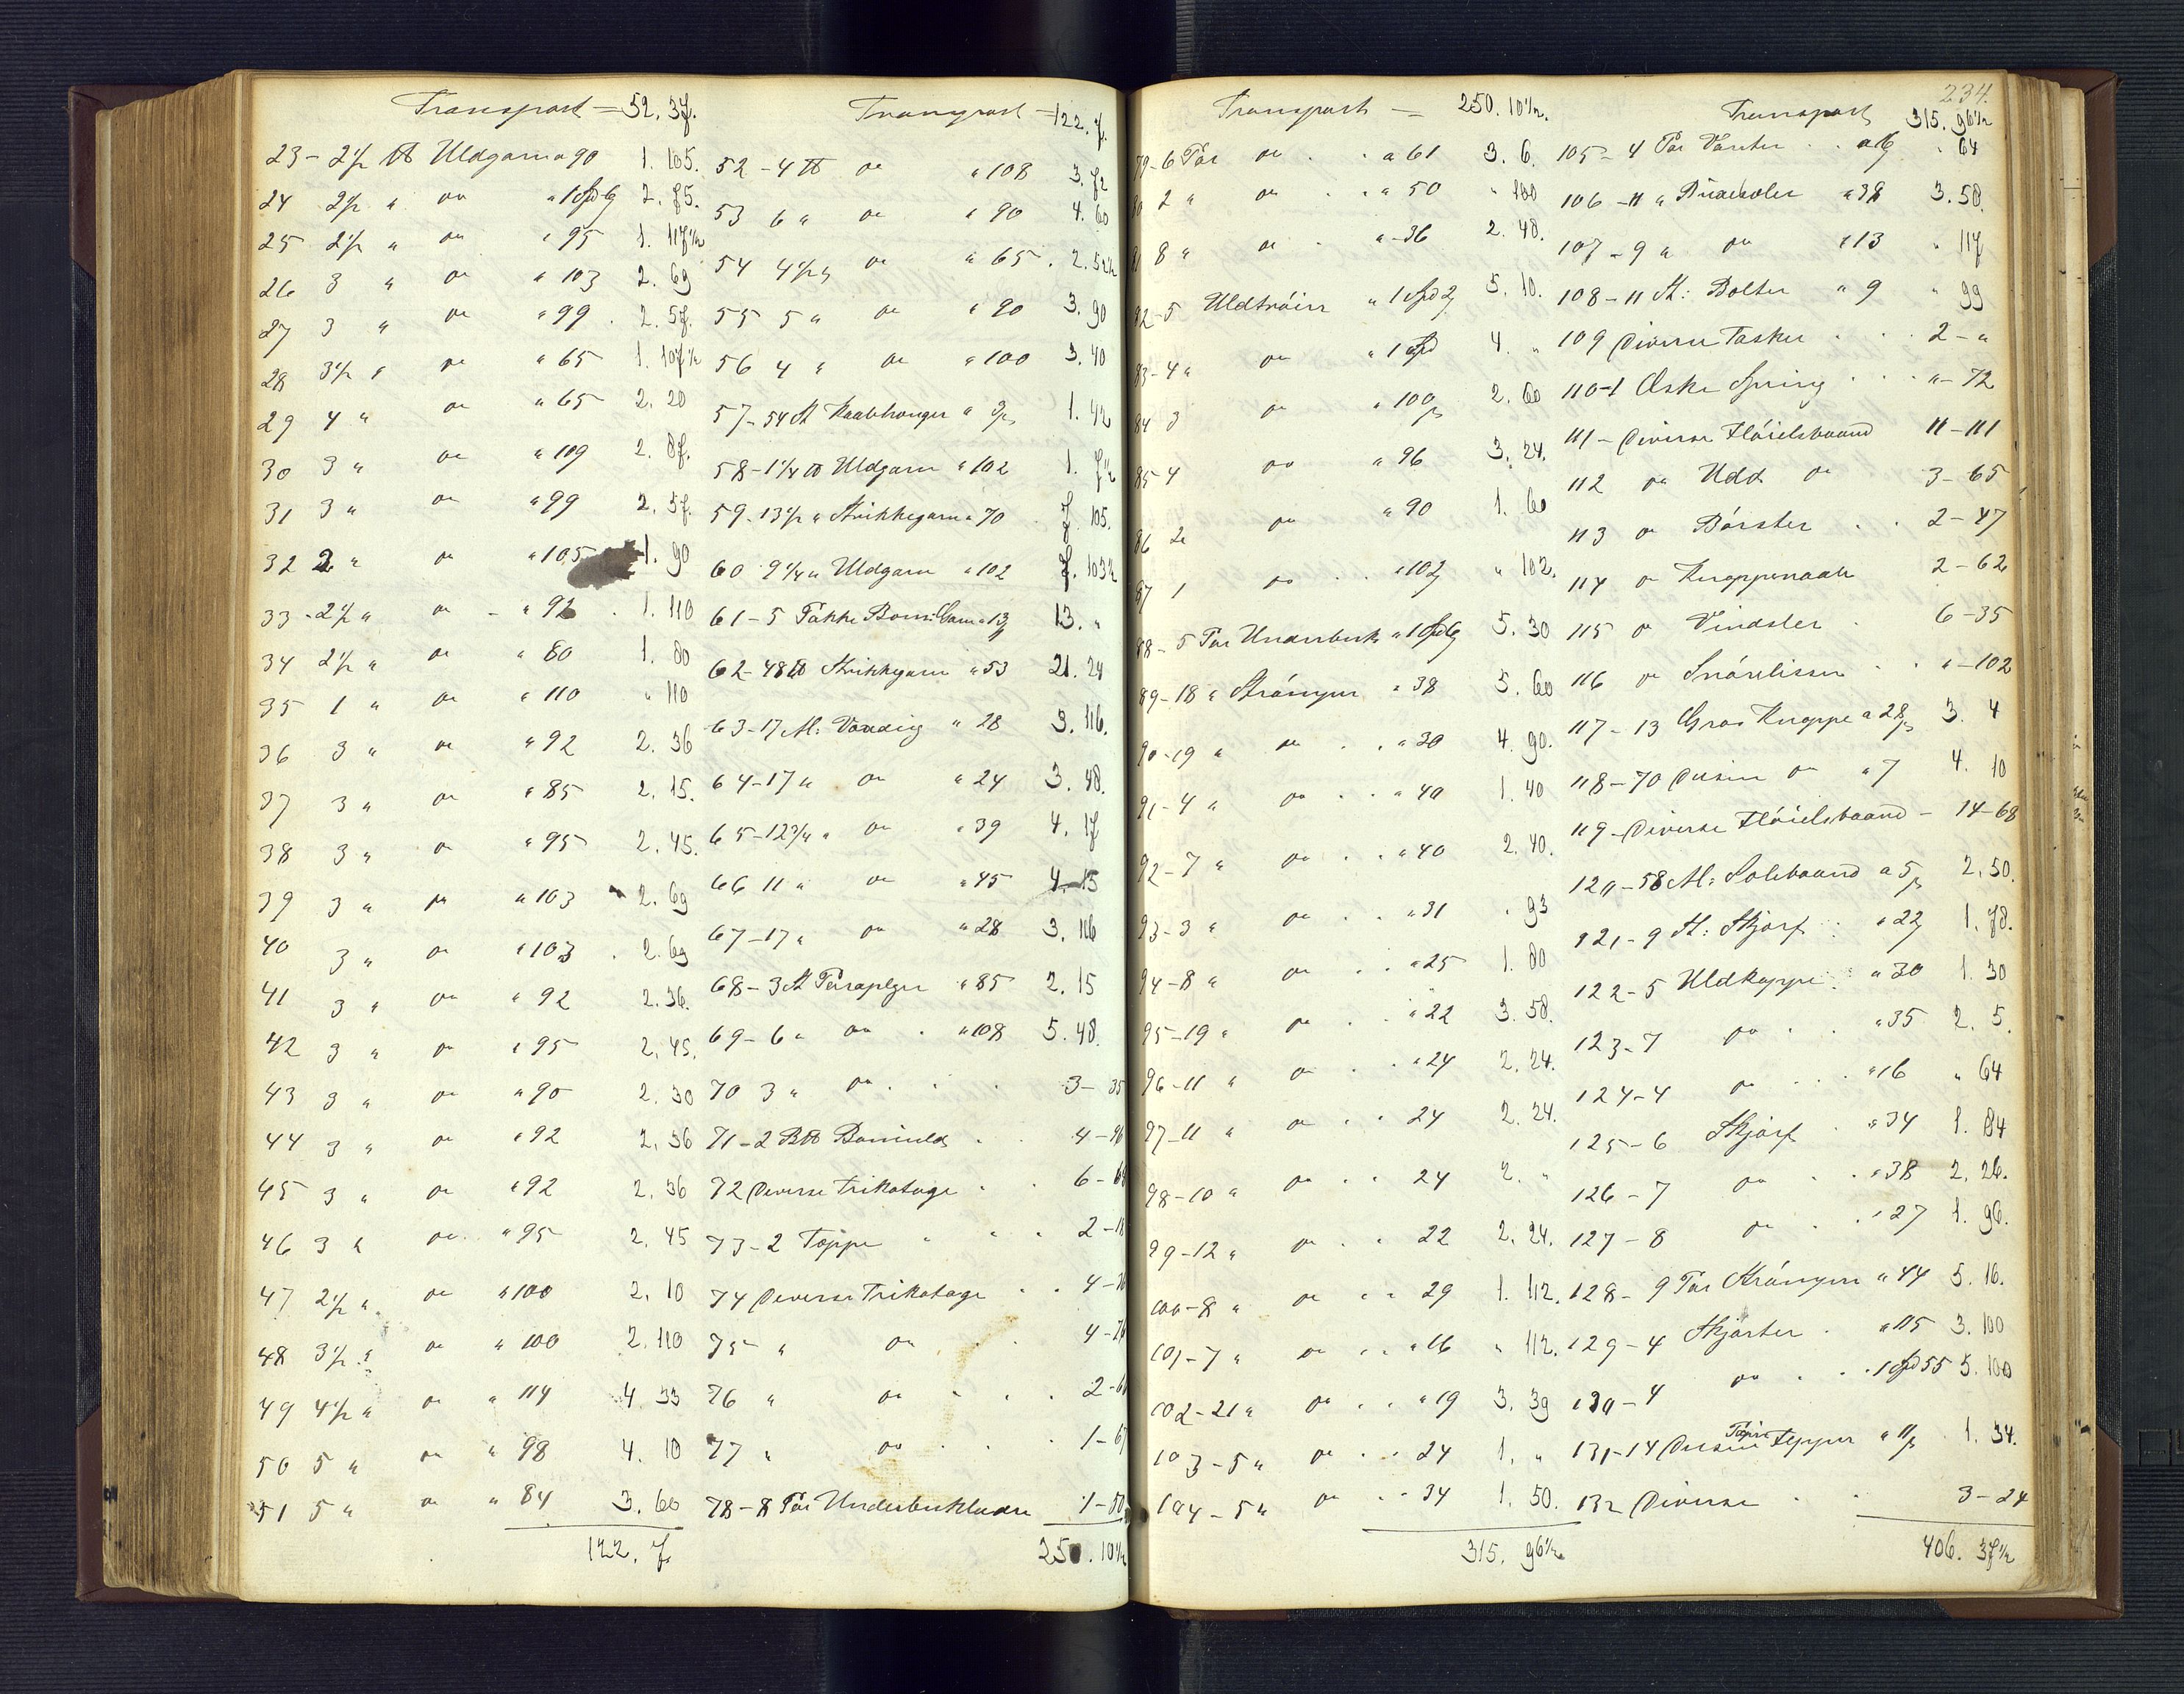 Transport = 52. 37.
23 - 2 1/2 ℔ Uldgarn a 90 1. 105.
24 2 1/2 " do " 1 Spd 6 2. 75.
25 2 1/2 " do " 95 1. 117 1/2
26 3 " do " 103 2. 69
27 3 " do " 99 . 2. 57.
28 3 1/2 " do " 65 1. 107 1/2
29 4 " do " 65 2. 20
30 3 " do " 109 2. 87.
31 3 " do " 99 2. 57.
32 2 " do " 105 1. 90
33 - 2 1/2 " do - " 92 . 1. 110
34 2 1/2 " do " 80 1. 80
35 1 " do " 110 " 110
36 3 " do " 92 2. 36
37 3 " do " 85 2. 15.
38 3 " do " 95 2. 45.
39 3 " do " 103 2. 69
40 3 " do " 103 . 2. 69
41 3 " do " 92 2. 36.
42 3 " do " 95 2. 45.
43 3 " do " 90 2. 30
44 3 " do " 92 2. 36
45 3 " do " 92 2. 36
46 3 " do " 95 2. 45
47 2 1/2 " do " 100 2. 10
48 3 1/2 " do " 100 2. 110
49 4 1/2 " do " 114 4. 33
50 5 " do " 98 4. 10
51 5 " do " 84 3. 60
122. 7.
Transport = 122. 7.
52 - 4 ℔ do " 108 3. 72
53 6 " do " 90 4. 60
54 4 1/2 " do " 65 . 2. 52 1/2
55 5 " do " 90 3. 90
56 4 " do " 100 3. 40
57 - 54 St " 1. 42
58 - 1 1/4 ℔ Uldgarn " 102 1. 7 1/2
59 - 13 1/2 " Strikkegarn " 70 7. 105.
60 9 1/4 " Uldgarn " 102 7. 103 1/2
61 - 5 Pakke Bom: Garn " 13. "
62 - 48 ℔ Strikkegarn " 53 21. 24
63 - 17 Al: Vadding " 28 3. 116.
64 - 17 " do " 24 3. 48.
65 - 12 3/4 " do " 39 4. 17
66 11 " do " 45 4. 15
67 - 17 " do " 28 3. 116
68 - 3 St Paraplyer " 85 2. 15
69 - 6 " do . " 108 5. 48.
70 3 " do . . . 3 - 35
71 - 2 B℔ Bomuld . . 4 - 96
72 Diverse Trikotage . . 6 - 68
73 - 2 Tæppe " . . 2 - 18
74 Diverse Trikotage . . 4 - 26
75 " do . 4 - 76
76 " do . . . 2 - 60
77 " do . . . 1 - 67
78 - 8 Par Underbenklæder 1 - 80
250. 10 1/2
234.
Transport = 250. 10 1/2.
79 - 6 Par do . . a 61 3. 6.
80 2 " do . . " 50 " 100
81 8 " do . " 36 2. 48.
82 - 5 Uldtröier " 1 Spd 2 5. 10.
83 - 4 " do " 1 Spd 4. "
84 3 do " 100 2. 60
85 4 do " 96 3. 24.
86 2 do " 90 1. 60
87 1 do . . " 102 " 102.
88 - 5 Par Underbenk " 1 Spd 6 5. 30
89 - 18 " Strömper " 38 5. 60
90 - 19 " do . . " 30 4. 90.
91 - 4 " do . . " 40 1. 40
92 - 7 " do . . " 40 2. 40.
93 - 3 " do . . " 31 . 93
94 - 8 " do . . " 25 1. 80
95 - 19 " do . . " 22 3. 58.
96 - 11 " do . . " 24 2. 24.
97 - 11 " do . . 24 2. 24.
98 - 10 " do . . 24 2. "
99 - 12 " do . . 22 2. 24.
100 - 8 " do . . 29 1. 112.
101 - 7 " do . . " 16 " 112.
102 - 21 " do . . " 19 3. 39
103 - 5 " do . . 24 1. "
104 - 5 " do . . 34 1. 50.
315. 96 1/2
Transport 315. 96 1/2
105 - 4 Par Vanter . . a 16 . 64
106 - 11 " " 38 3. 58.
107 - 9 " do " 13 " 117
108 - 11 St: Bolter " 9 " 99
109 Diverse Tasker . . . 2 - "
110 - 1 Æske Spring . . . " - 72
111 - Diverse Flöielsbaand 11 - 111
112 do Uld do 3 - 65
113 do Börster . . 2 - 47
114 do Knappenaale 2 - 62
115 do Vindsler . 6 - 35
116 do Snörelisser . . " - 102
117 - 13 Gros Knappe a 28 3. 4
118 - 70 Dusin do " 7 4. 10
119 - Diverse Flöielsbaand - 14 - 68
120 - 58 Al: a 5 2. 50.
121 - 9 St: Skjærf . " 22 1. 78.
122 - 5 Uldkappe . " 30 1. 30
123 - 7 do . . " 35 2. 5.
124 - 4 do . . . " 16 " 64
125 - 6 Skjærf . " 34 1. 84
126 - 7 do . . " 38 2. 26.
127 - 8 do . . " 27 1. 96.
128 - 9 Par Strömper " 44 5. 16.
129 - 4 Skjorter . " 115 3. 100
130 - 4 do . . . 1 Spd 55 5. 100
131 - 14 Dusin " 11 . 1. 34.
132 Diverse . . 3 - 24
406. 37 1/2